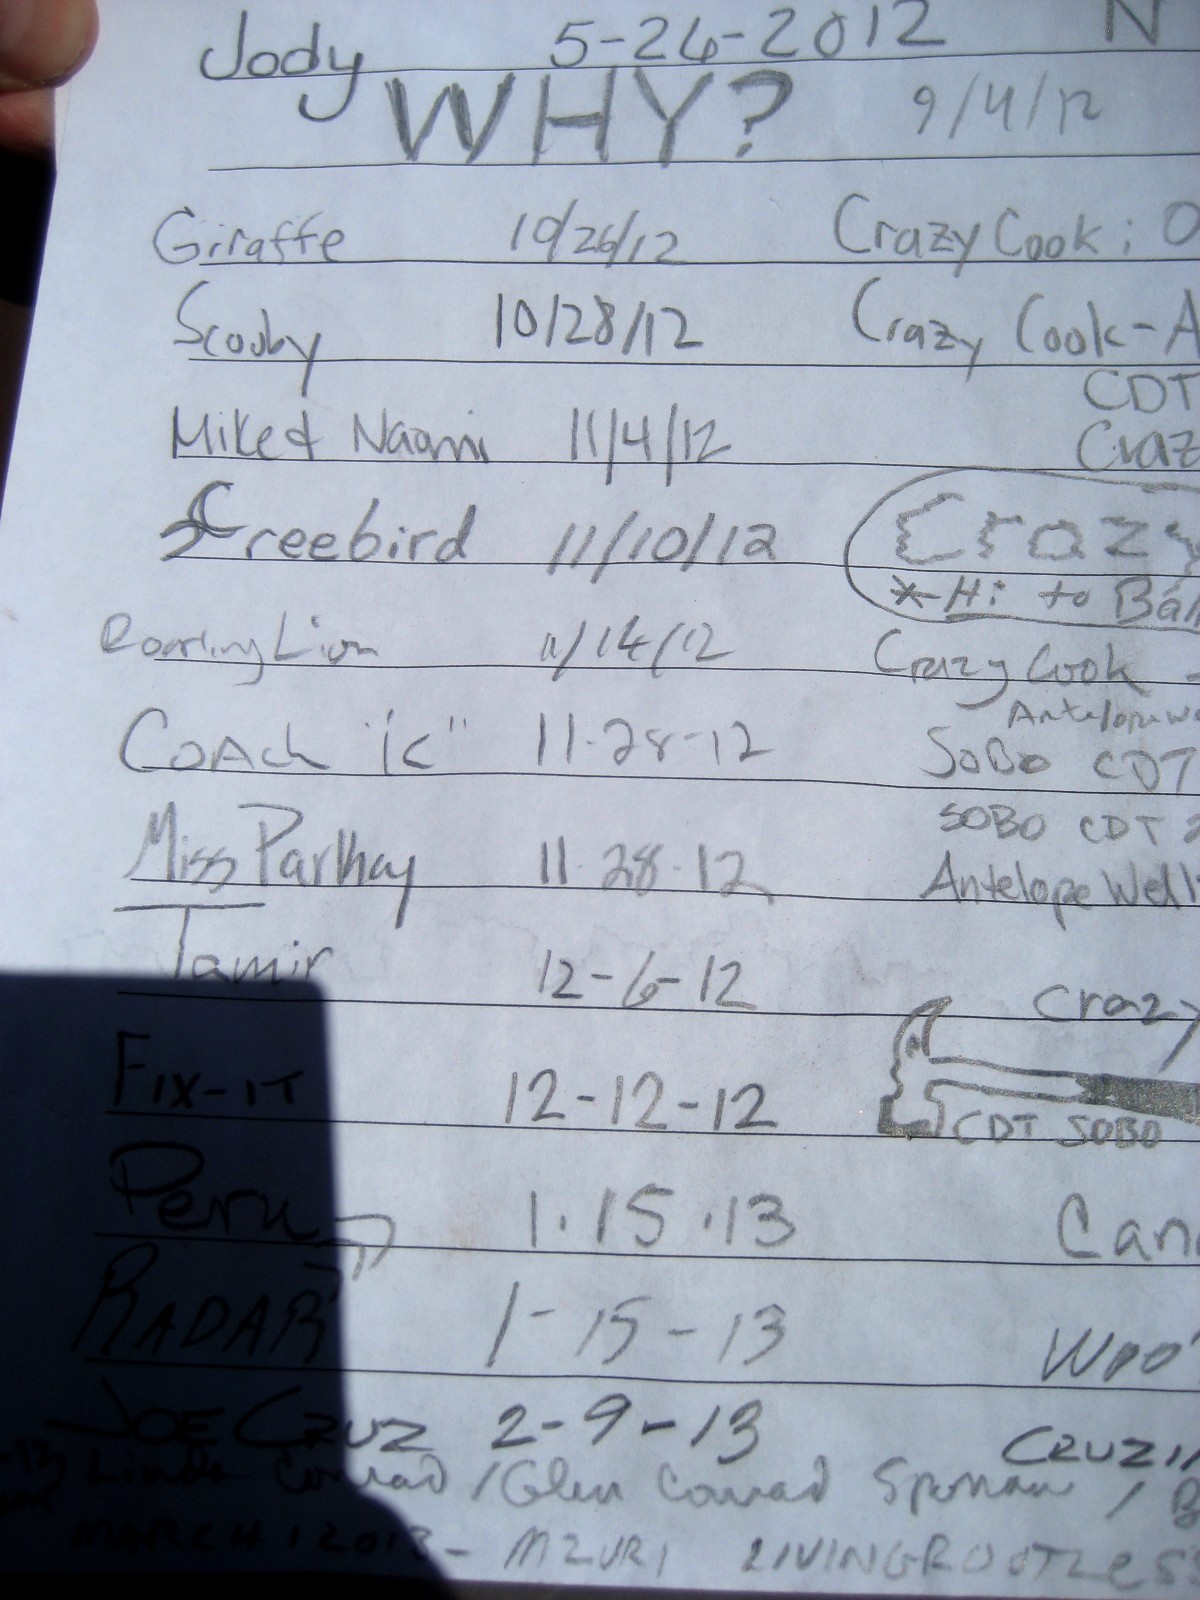 Jody 5-26-2012 N
WHY? 9/4/12
Giraffe 10/26/12 Crazy Cook; O
Scooby 10/28/12 Crazy Cook-A
CDT
Mike & Naomi 11/4/12 Craz
Freebird 11/10/12 Crazy
*Hi to Bá
Roaring Lion 11/14/12 Crazy Cook -
Antelope W
Coach "K" 11-28-12 SoBo CDT
SOBO CDT 2
Miss Parkay 11-28-12 Antelope Well
Tamir 12-6-12 Crazy
Fix-it 12-12-12 CDT SOBO
Peru 1.15.13 Can
RADAR 1-15-13 Woo
JOE CRUZ 2-9-13 CRUZI
Linda Conrad / Glen Conrad / B
MARCH 1 2013 - MZURI LIVINGROOTLESS